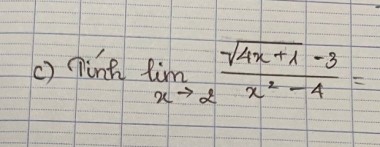 c) Tính lim_{x → 2} \frac{\sqrt{4x+1} - 3}{x^2 - 4} =